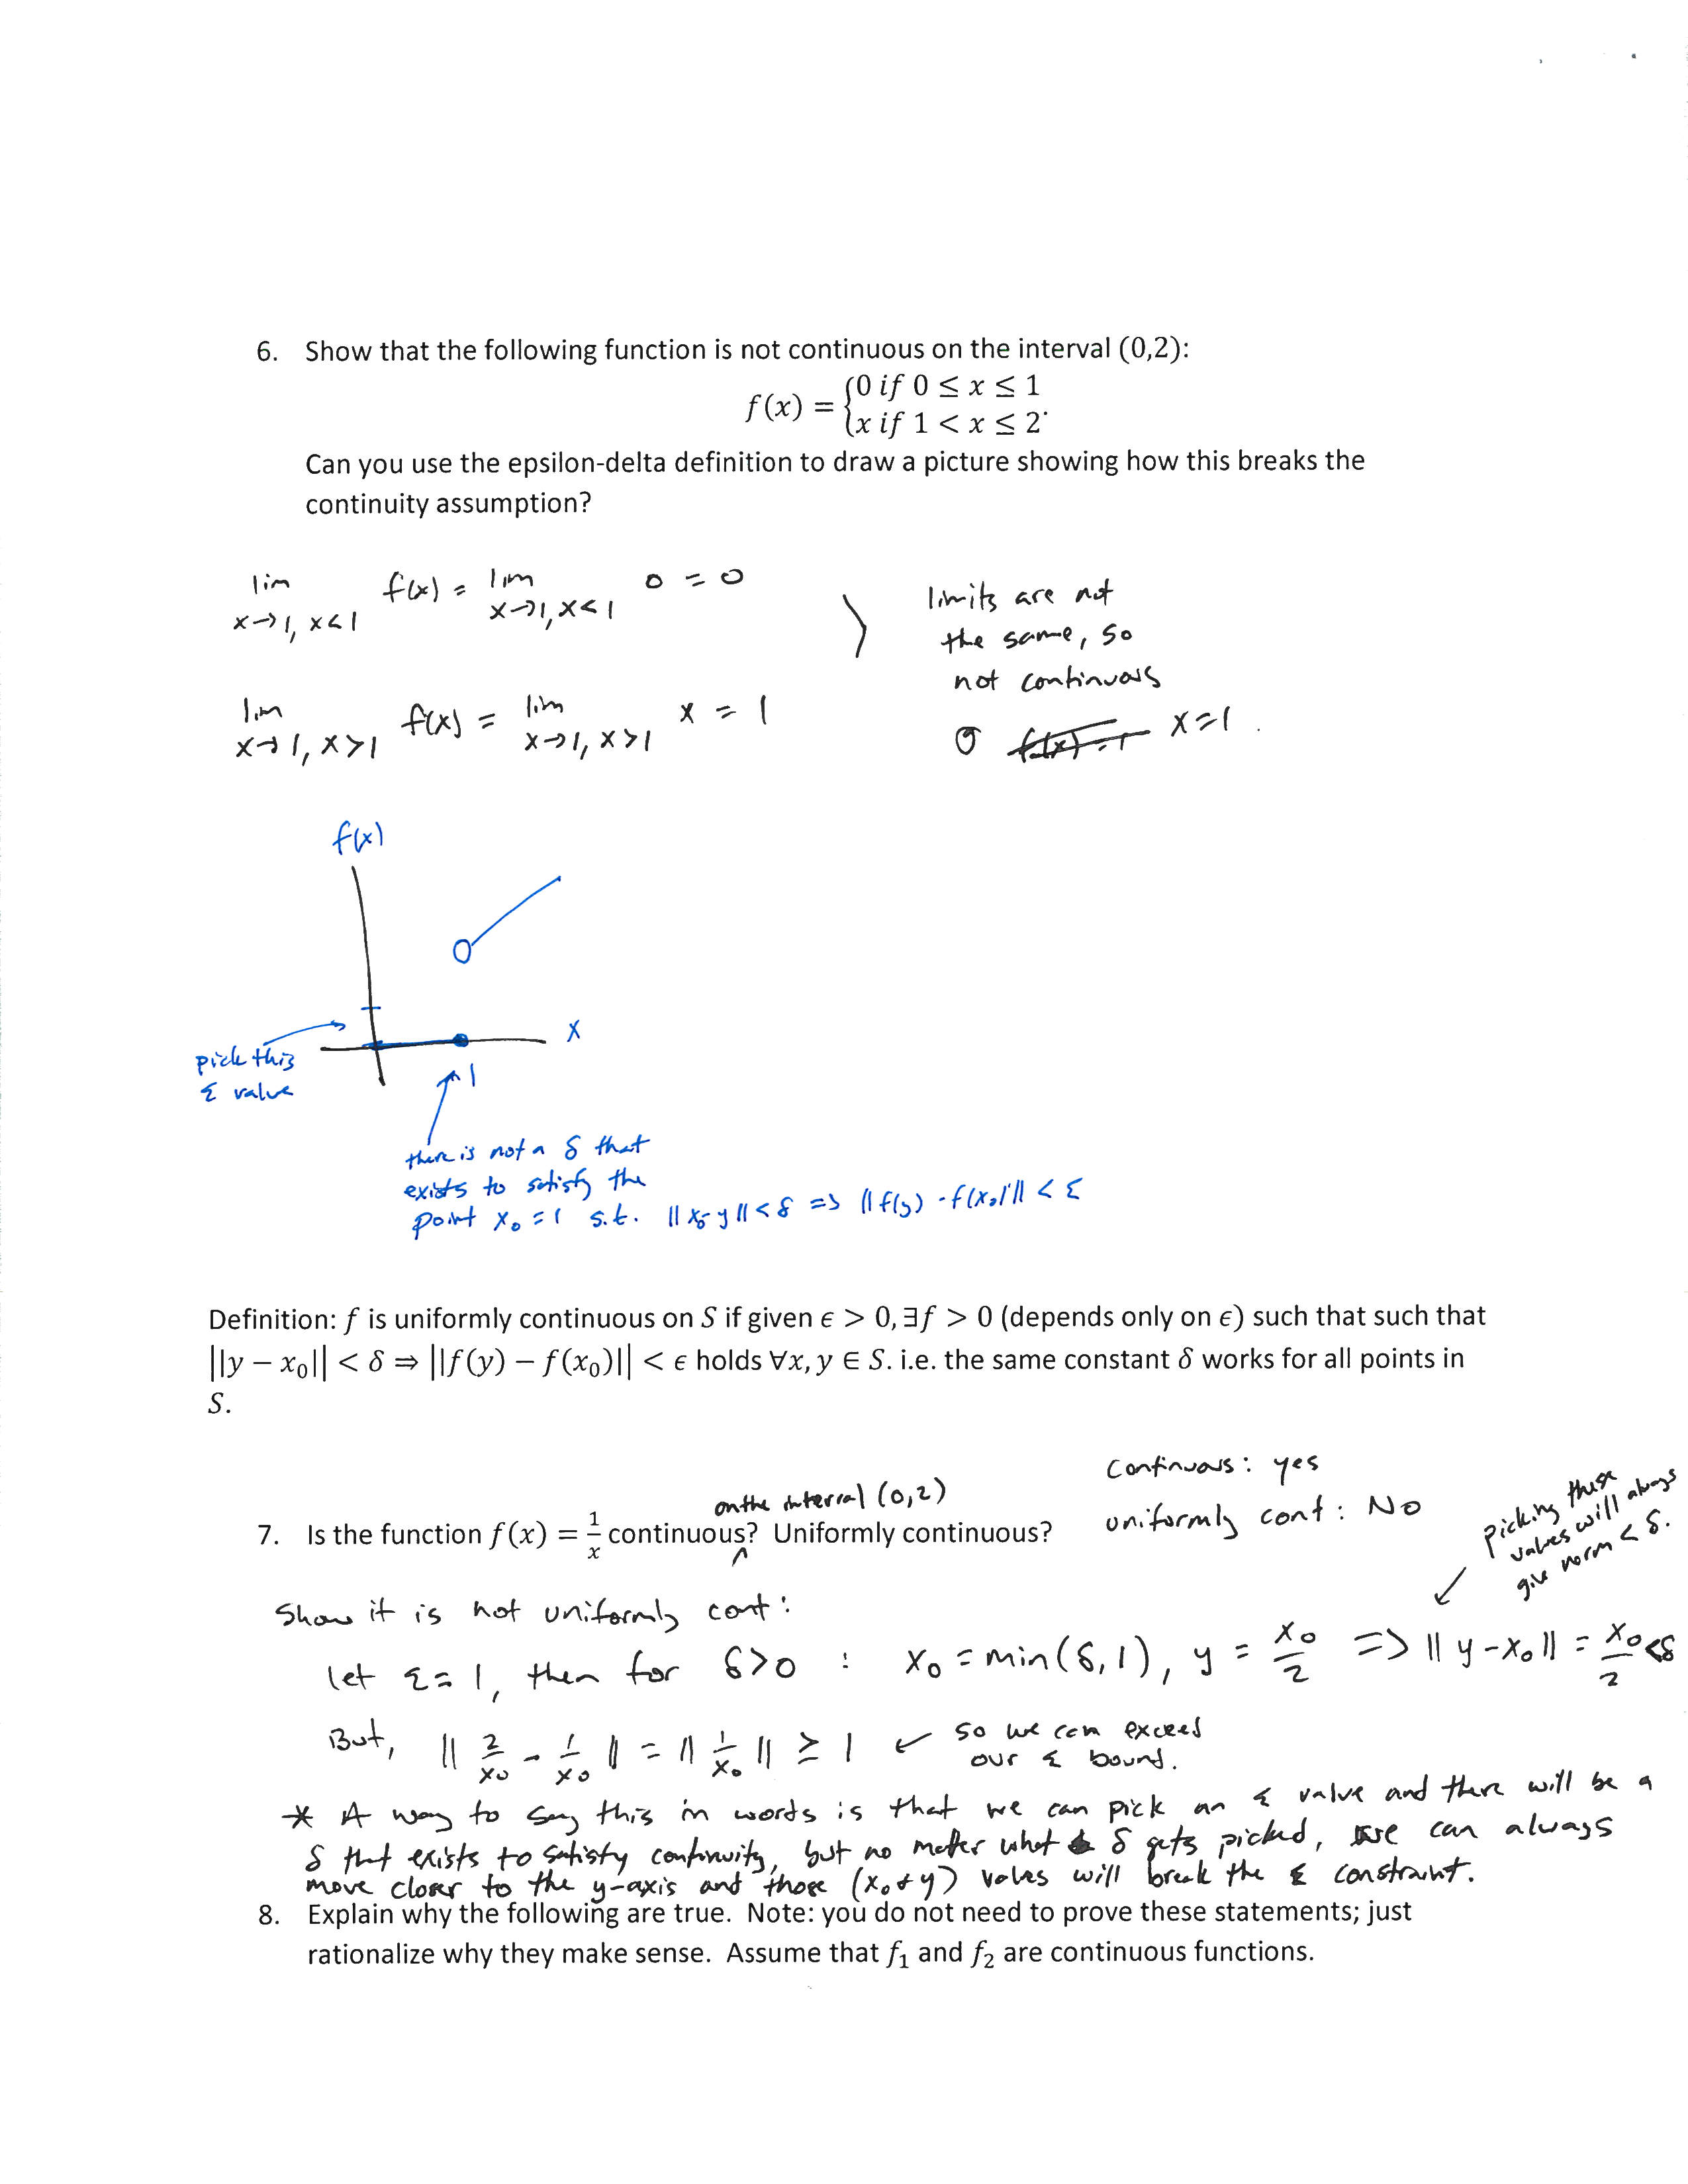 6. Show that the following function is not continuous on the interval (0,2):
f(x) = {0 if 0 ≤ x ≤ 1
x if 1 < x ≤ 2.
Can you use the epsilon-delta definition to draw a picture showing how this breaks the
continuity assumption?
lim x→1, x<1 f(x) = lim x→1, x<1 0 = 0
lim x→1, x>1 f(x) = lim x→1, x>1 x = 1
limits are not
the same, so
not continuous
@ x=1.
f(x)
x
1
pick this
ε value
there is not a δ that
exists to satisfy the
point x₀ = 1 s.t. ||x₀-y|| < δ => ||f(y) - f(x₀)|| < ε
Definition: f is uniformly continuous on S if given ϵ > 0, ∃f > 0 (depends only on ϵ) such that such that
||y − x₀|| < δ ⇒ ||f(y) − f(x₀)|| < ϵ holds ∀x, y ∈ S. i.e. the same constant δ works for all points in
S.
Continuous: yes
uniformly cont: No
on the interval (0,2)
7. Is the function f(x) = 1/x continuous? Uniformly continuous?
^
picking these
values will always
give norm < δ.
Show it is not uniformly cont:
let ε = 1, then for δ>0 : x₀ = min(δ, 1), y = x₀/2 => ||y-x₀|| = x₀/2 < δ
But, ||2/x₀ - 1/x₀|| = ||1/x₀|| ≥ 1 ← so we can exceed
our ε bound.
* A way to say this in words is that we can pick an ε value and there will be a
δ that exists to satisfy continuity, but no matter what δ gets picked, we can always
move closer to the y-axis and those (x₀ & y) vales will break the ε constraint.
8. Explain why the following are true. Note: you do not need to prove these statements; just
rationalize why they make sense. Assume that f₁ and f₂ are continuous functions.